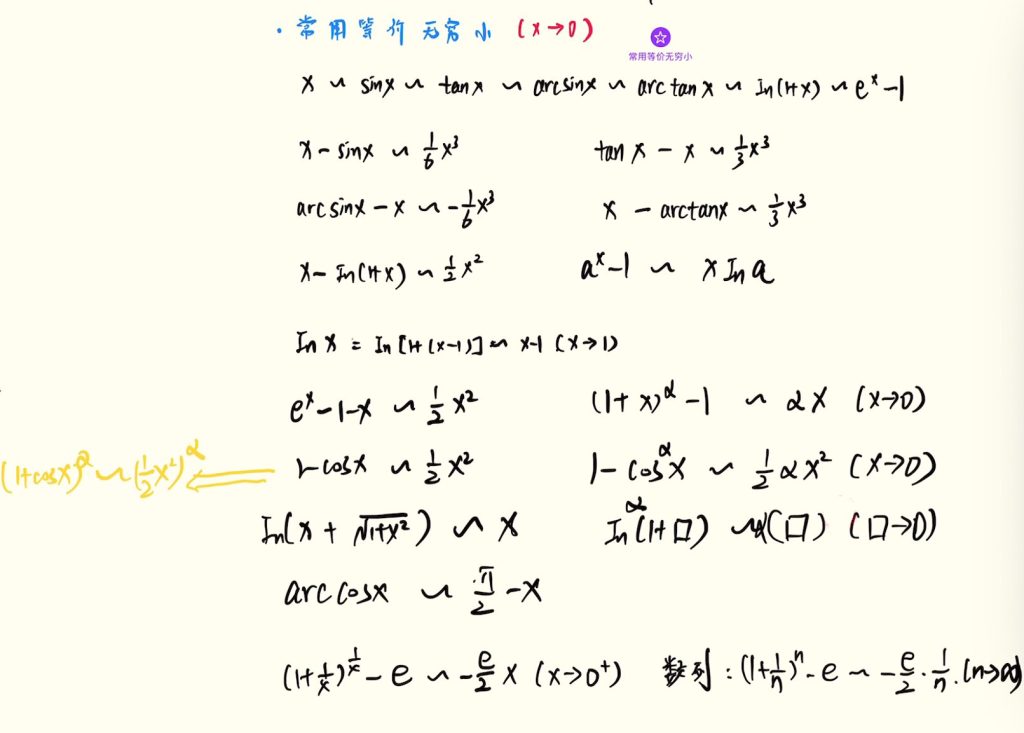 · 常用等价无穷小 (x→0)
常用等价无穷小
x ~ sinx ~ tanx ~ arcsinx ~ arctanx ~ In(1+x) ~ e^x -1
x - sinx ~ 1/6 x^3 tanx - x ~ 1/3 x^3
arcsinx - x ~ -1/6 x^3 x - arctanx ~ 1/3 x^3
x - In(1+x) ~ 1/2 x^2 a^x -1 ~ x In a
In x = In[1+(x-1)] ~ x-1 (x→1)
e^x -1-x ~ 1/2 x^2 (1+x)^α -1 ~ αx (x→0)
(1+cosx)^α ~ (1/2 x^2)^α 1-cosx ~ 1/2 x^2 1-cos^α x ~ 1/2 αx^2 (x→0)
In(x+√(1+x^2)) ~ x In^α(1+□) ~ α(□) (□→0)
arccosx ~ π/2 - x
(1+1/x)^(1/x) - e ~ -e/2 x (x→0^+) 数列: (1+1/n)^n - e ~ -e/2 · 1/n. (n→∞)